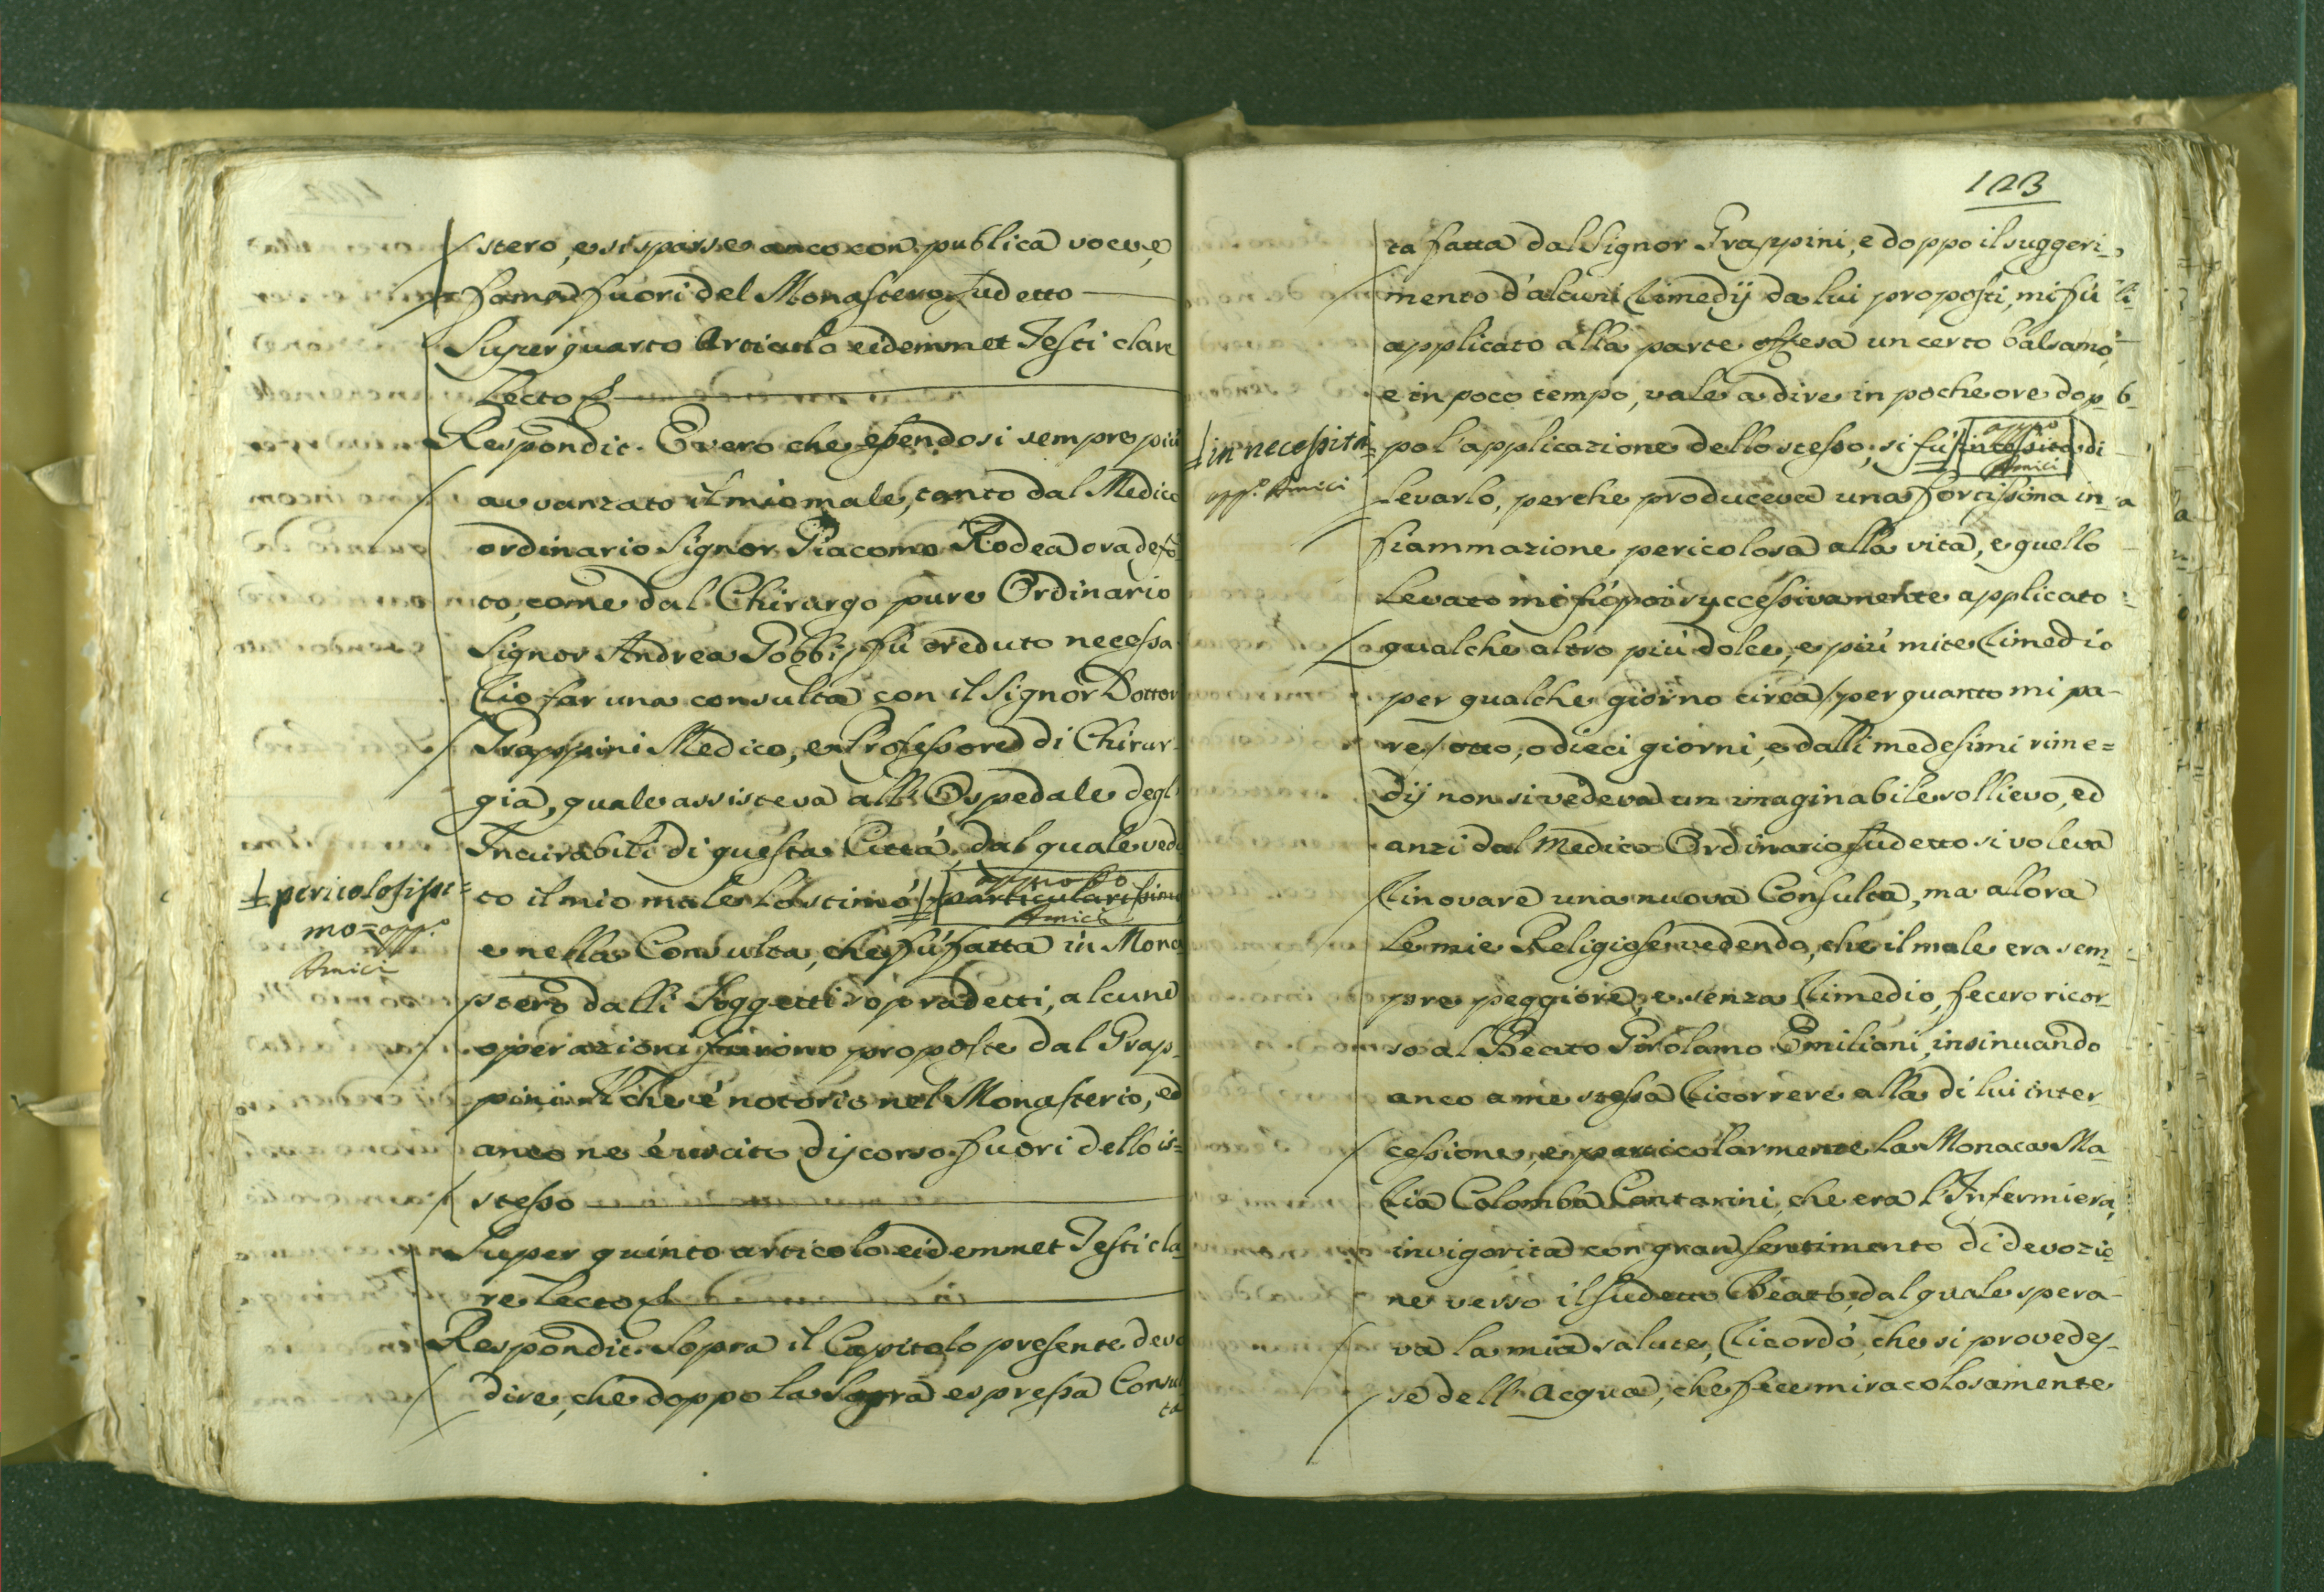 stero, e si sparse anco con publica voce, e
fama fuori del Monastero sudetto
Super quarto Articulo eidemmet Testi clare
Lecto
Respondit. È vero che essendosi sempre più
avvanzato il mio male, tanto dal Medico
ordinario Signor Giacomo Rodea ora defo=
to, come dal Chirurgo pure Ordinario
Signor Andrea Gobbi, fù creduto necessa=
rio far una consulta con il Signor Dottor
Grappini Medico, e Professore di Chirur=
gia, quale assisteva all'Ospedale degl'
Incurabili di questa Città, dal quale vedu
pericolosissi=
mo= app.o
Amici
to il mio male lo stimò particularissimo
approbo
Amici
e nella Consulta, che fù fatta in Mona
stero dalli Soggetti sopradetti, alcune
operazioni furono proposte dal Grap=
pini. Il che è notorio nel Monasterio, ed
anco ne è uscito discorso fuori dello is=
stesso
Super quinto articolo eidemmet Testi cla=
re lecto
Respondit. Sopra il Capitolo presente devo
dire, che doppo la sopra espressa Consul
ta
123
ta fatta dal Signor Grappini, e doppo il suggeri=
mento d'alcuni rimedij da lui proposti, mi fù
applicato alla parte offesa un certo balsamo,
e in poco tempo, vale a dire in poche ore dop=
in necessità
app.o Amici
po l'applicazione dello stesso, si fù in di
appo
Amici
levarlo, perche produceva una fortissima in=
fiammazione pericolosa alla vita, e quello
levato mi fù poi successivamente applicato
qualche altro più dolce, e più mite rimedio
per qualche giorno circa / per quanto mi pa=
re / otto, o dieci giorni, e dalli medesimi rime=
dij non si vedeva un imaginabile sollievo, ed
anzi dal Medico Ordinario sudetto si voleva
rinovare una nuova Consulta, ma allora
le mie Religiose vedendo, che il male era sem=
pre peggiore, e senza rimedio, fecero ricor=
so al Beato Girolamo Emiliani, insinuando
anco a me stessa ricorrere alla di lui inter=
cessione, e particolarmente la Monaca Ma=
ria Colomba Contarini, che era l'Infermiera,
invigorita con gran sentimento di devozio=
ne verso il sudetto Beato, dal quale spera=
va la mia salute, ricordò, che si provedes=
se dell'Acqua, che fece miracolosamente